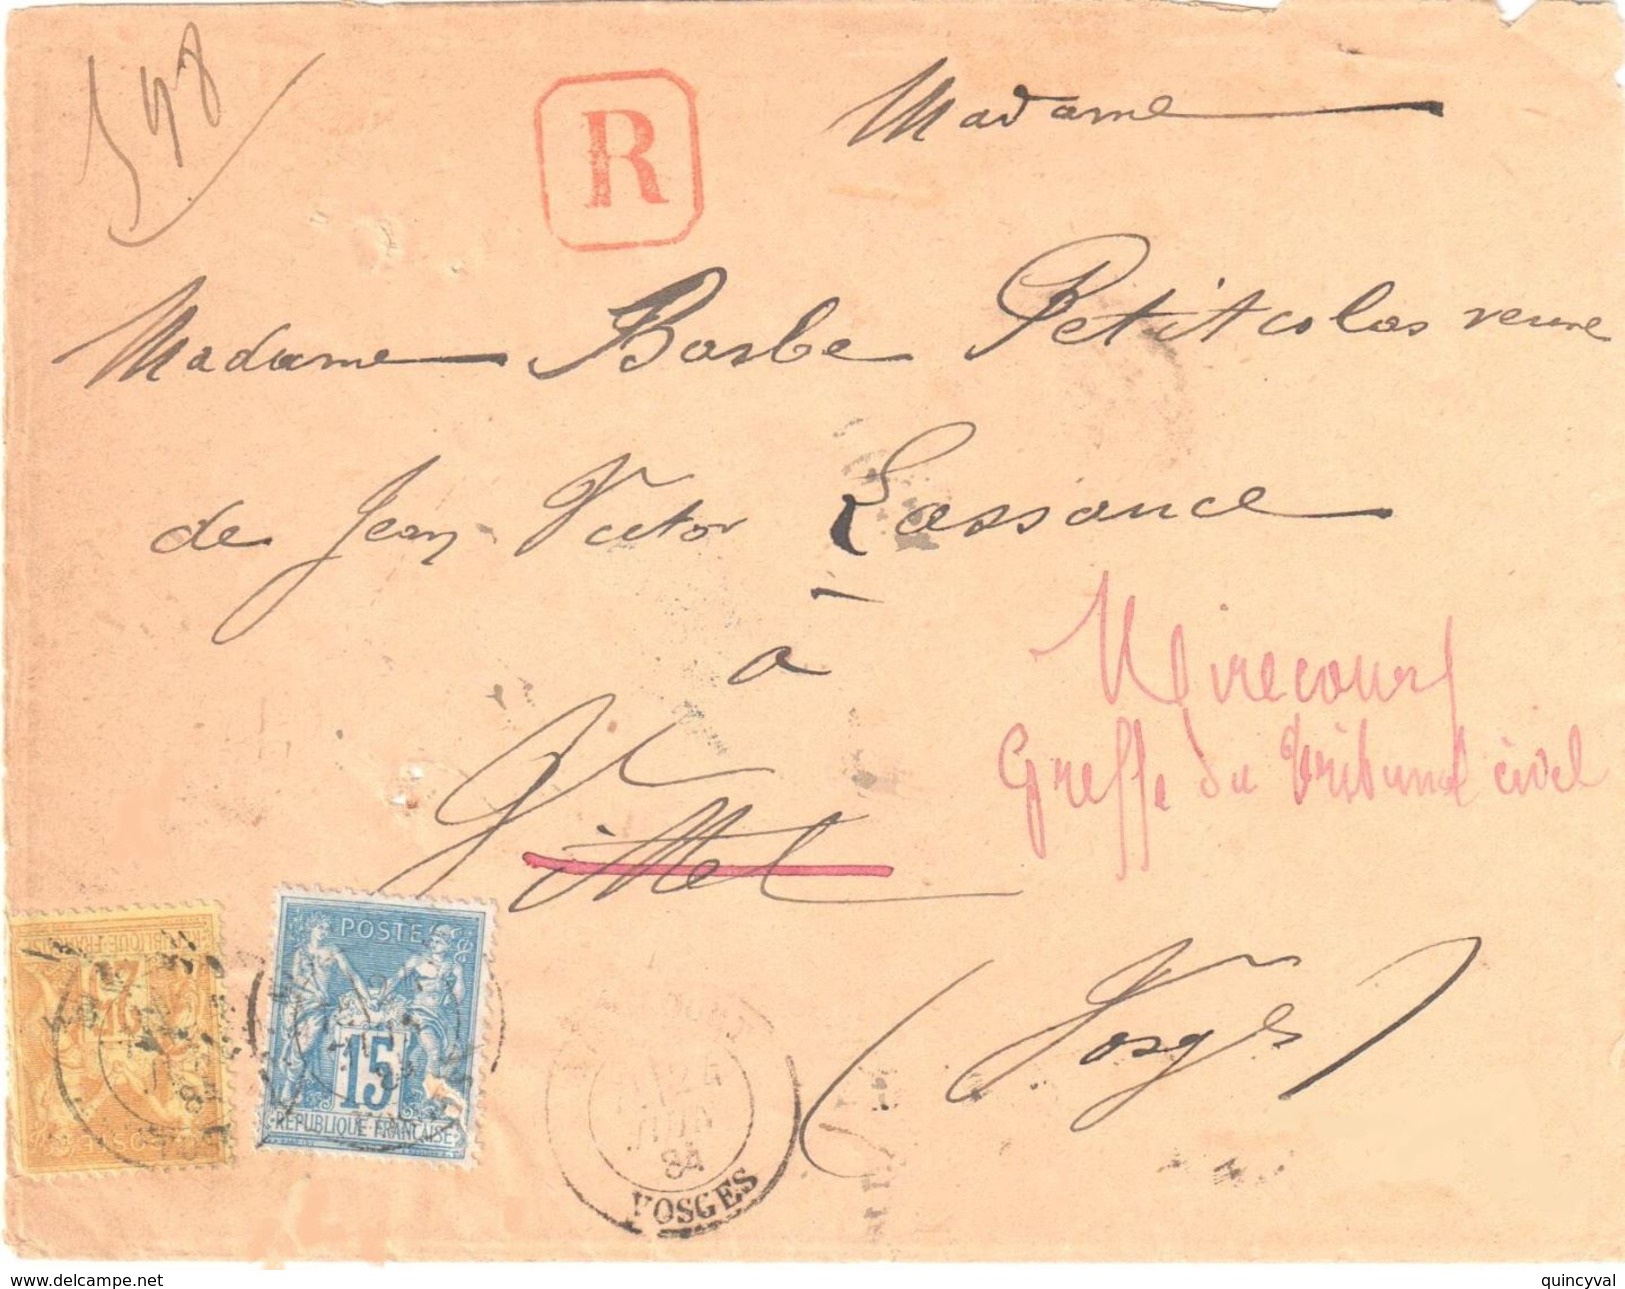 598
R
Madame
Madame Barbe Petitcolas veuve
de Jean Victor Lassance
à
Mirecourt
Greffe du Tribunal civil
Vittel
(Vosges)
POSTE
15
REPUBLIQUE FRANÇAISE
24
JUIN
84
VOSGES
www.delcampe.net
quincyval